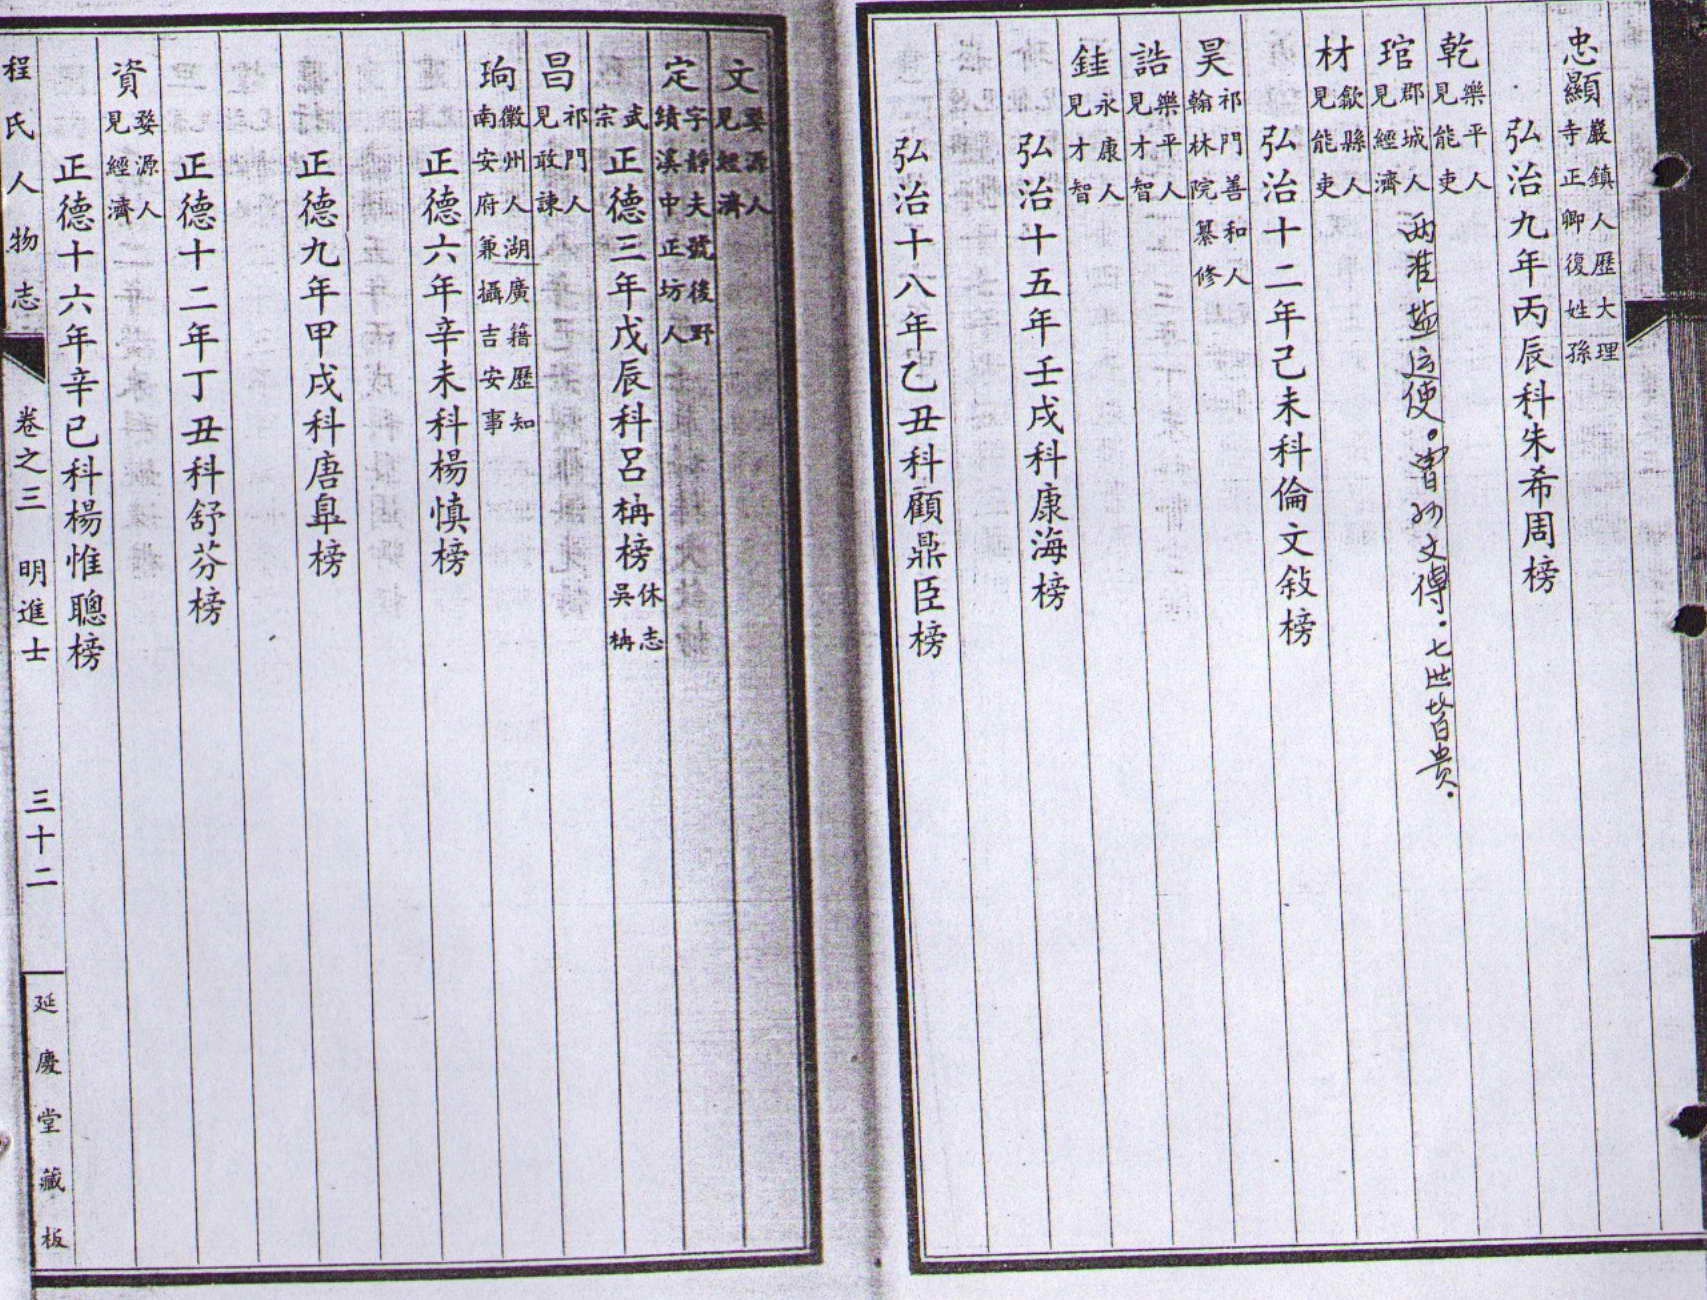 忠顯 巖鎮人歷大理寺正卿復姓孫
弘治九年丙辰科朱希周榜
乾 樂平人見能吏
琯 郡城人見經濟 两淮盐运使。曾孙文傳.七世皆贵.
材 歙縣人見能吏
弘治十二年己未科倫文敍榜
昊 祁門善和人翰林院纂修
誥 樂平人見才智
鈇 永康人見才智
弘治十五年壬戌科康海榜
弘治十八年乙丑科顧鼎臣榜
文 婺源人見經濟
定 字靜夫號後野績溪中正坊人
武宗 正德三年戊辰科呂柟榜 休志吳柟
昌 祁門人見敢諫
珦 徽州人湖廣籍歷知南安府兼攝吉安事
正德六年辛未科楊慎榜
正德九年甲戌科唐臯榜
正德十二年丁丑科舒芬榜
資 婺源人見經濟
正德十六年辛巳科楊惟聰榜
程氏人物志 卷之三 明進士 三十二 延慶堂藏板